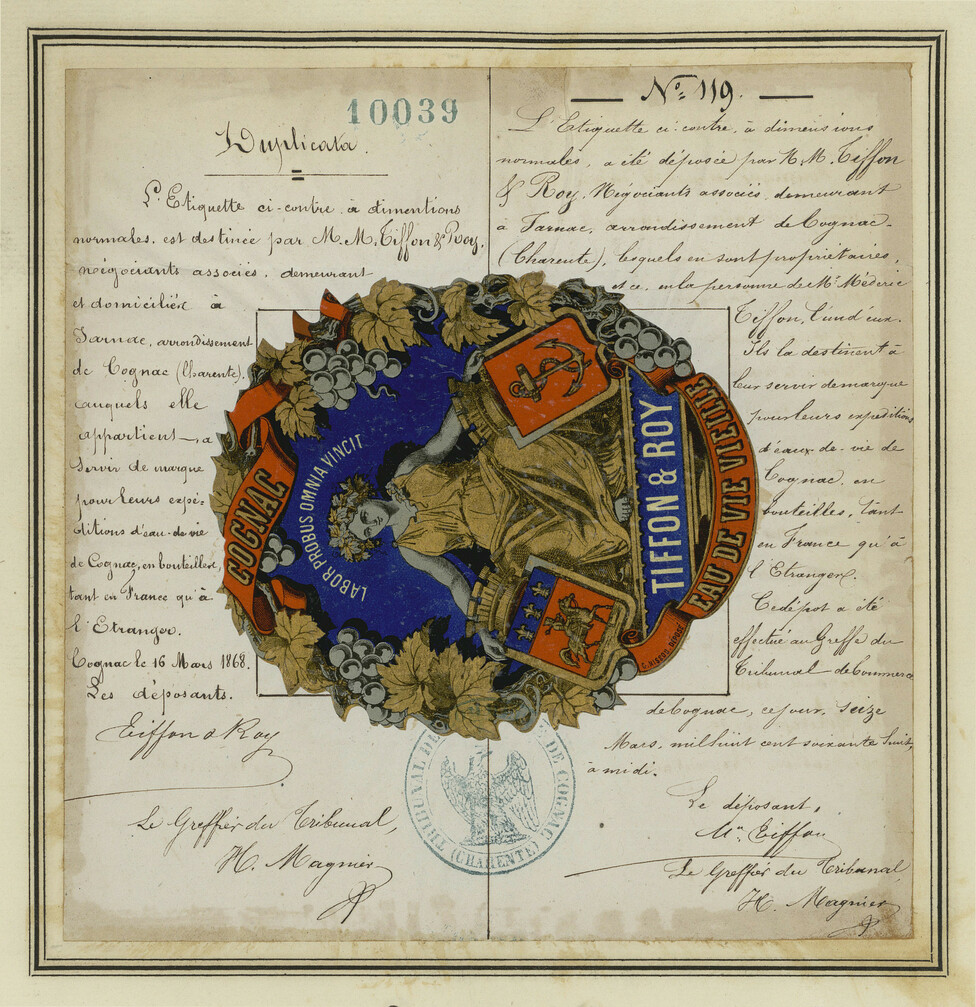 10039
Duplicata.
L'Etiquette ci-contre, à dimentions
normales, est destinée par M.M. Tiffon & Roy,
négociants associés, demeurant
et domiciliés à
Jarnac, arrondissement
de Cognac (Charente),
auxquels elle
appartient, à
servir de marque
pour leurs expé-
ditions d'eau-de-vie
de Cognac, en bouteilles,
tant en France qu'à
l'Etranger.
Cognac le 16 Mars 1868.
Les déposants.
Tiffon & Roy
Le Greffier du Tribunal,
H. Magnier
No = 119.
L'Etiquette ci-contre, à dimensions
normales, a été déposée par M.M. Tiffon
& Roy, Négociants associés, demeurant
à Jarnac, arrondissement de Cognac
(Charente), lesquels en sont propriétaires,
et ce, en la personne de Mr. Médéric
Tiffon, l'un d'eux.
Ils la destinent à
leur servir de marque
pour leurs expéditions
d'eaux-de-vie de
Cognac, en
bouteilles, tant
en France qu'à
l'Etranger.
Ce dépôt a été
effectué au Greffe du
Tribunal de Commerce
de Cognac, ce jour, seize
Mars, mil huit cent soixante huit,
à midi.
Le déposant,
Mc. Tiffon
Le Greffier du Tribunal,
H. Magnier
COGNAC
LABOR PROBUS OMNIA VINCIT
TIFFON & ROY
EAU DE VIE VIEILLE
DÉPOSÉ
TRIBUNAL DE DE COGNAC
(CHARENTE)